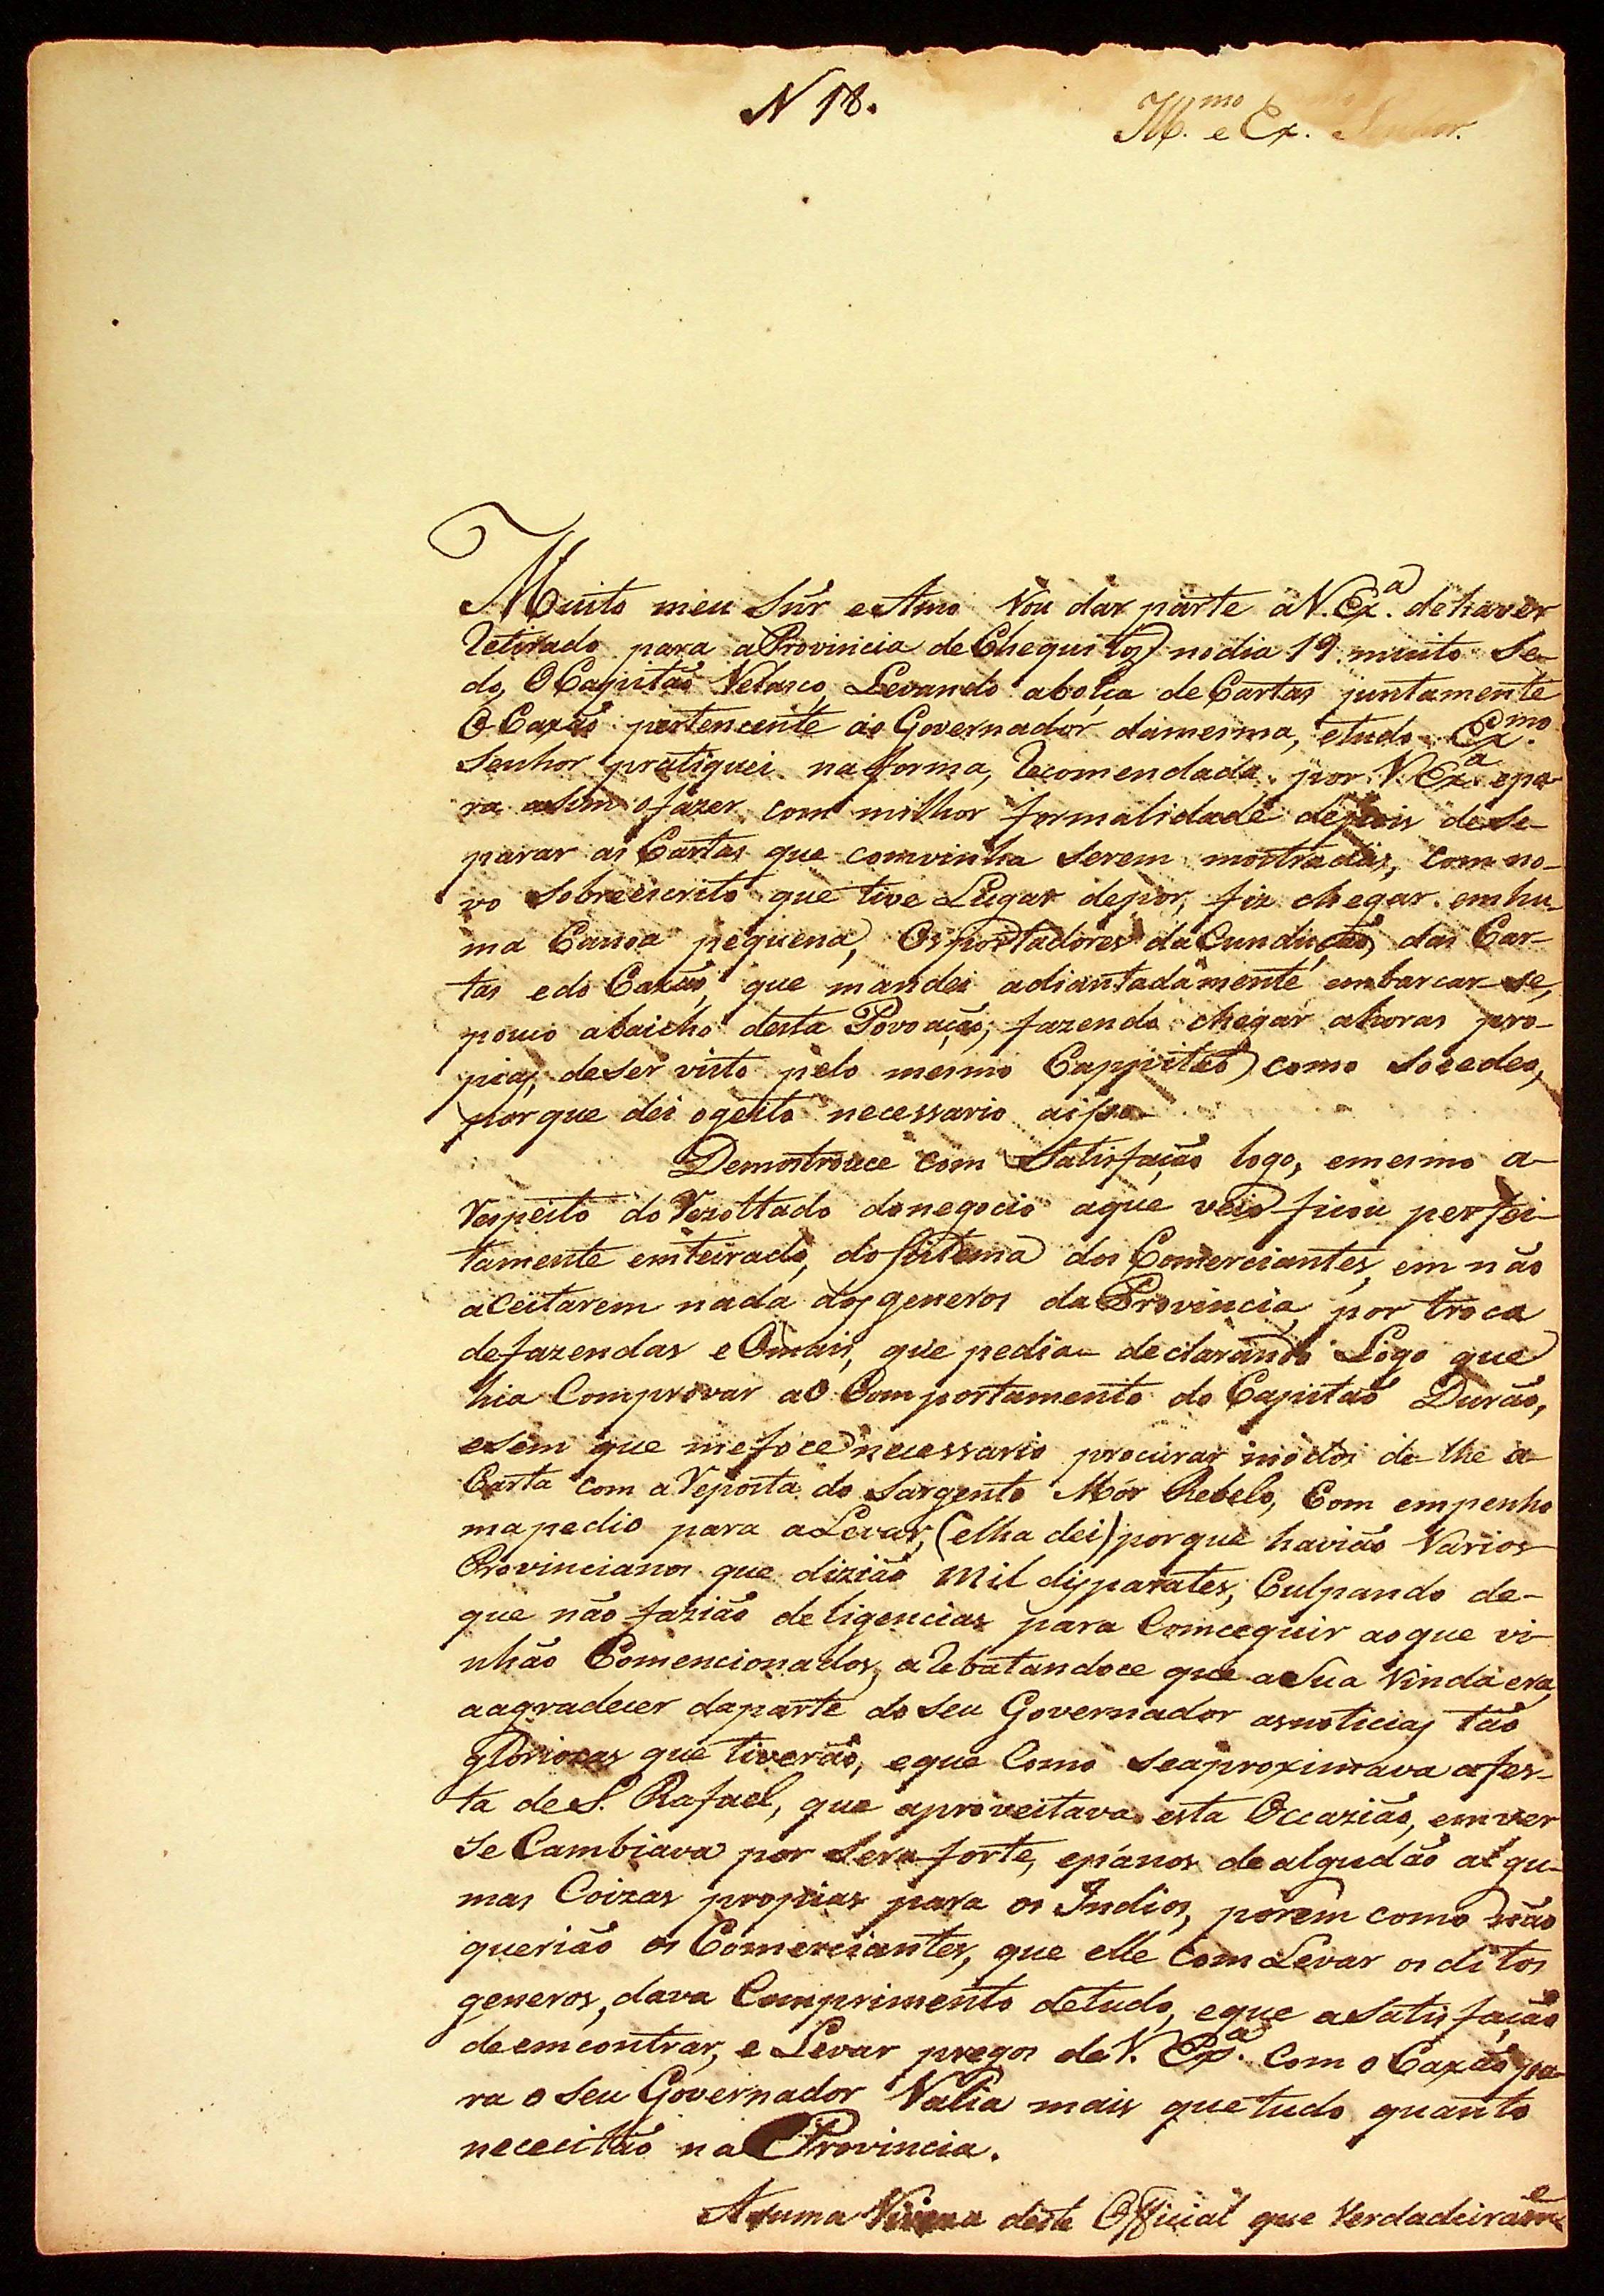 N 18.
Ill.mo e Ex. Senhor.
Muito meu Snr e Amo Vou dar parte a V. Ex.a de haver
Retirado para a Provincia de Chequitos no dia 19 muito Se-
do, O Capitaõ Velasco, Levando a bolça de Cartas juntamente
O Caxaõ pertencente ao Governador da mesma, e tudo Ex.mo
Senhor pratiquei na forma, Recomendada por V. Ex.a e pa-
ra assim o fazer com milhor formalidade depois de Se-
parar as Cartas que comvinha Serem mostradas, com no-
vo Sobreescrito que tive Lugar de por, fiz chegar em hu-
ma Canoa pequena, Os portadores da Cunduçaõ das Car-
tas e do Caxaõ, que mandei adiantadamente embarcar-se,
pouco abaicho desta Povoaçaõ, fazendo chegar a horas pro-
pias, de Ser visto pelo mesmo Cappitaõ como Socedeo,
porque dei o geito necessario a isso
Demostrouce com Satisfaçaõ logo, e mesmo a
Respeito do Rezoltado do negocio a que veio ficou perfei-
tamente emteirado, do Sistema dos Comerciantes, em não
aceitarem nada dos generos da Provincia, por troca
de fazendas e Omais, que pedia declarando Logo que
hia Comprovar ao Comportamento do Capitaõ Durão,
e sem que me foce necessario procurar modos da-lhe a
Carta com a Reposta do Sargento Mór Rebelo, Com empenho
ma pedio para a Levar, (e lha dei) porque havião Varios
Provincianos que dizião mil disparates, Culpando de-
que não fazião deligencias para Comceguir ao que vi-
nhão Comencionados, a Rebatandoce que a Sua Vinda era,
a agradecer da parte do Seu Governador as noticias tão
gloriozas que tiverão, e que Como Se aproximava a fes-
ta de S. Rafael, que aproveitava esta Occazião, em ver
Se Cambiava por Sera forte, e pânos de algudão algu-
mas Coizas proprias para os Indios, porem como não
querião os Comerciantes, que elle Com Levar os ditos
generos, dava Comprimento de tudo, e que a Satisfação
de emcontrar, e Levar pregos de V. Ex.a Com o Caxaõ pa-
ra o Seu Governador Valia mais que tudo quanto
nececitão na Provincia.
A Suma deste Official que Verdadeiram.e